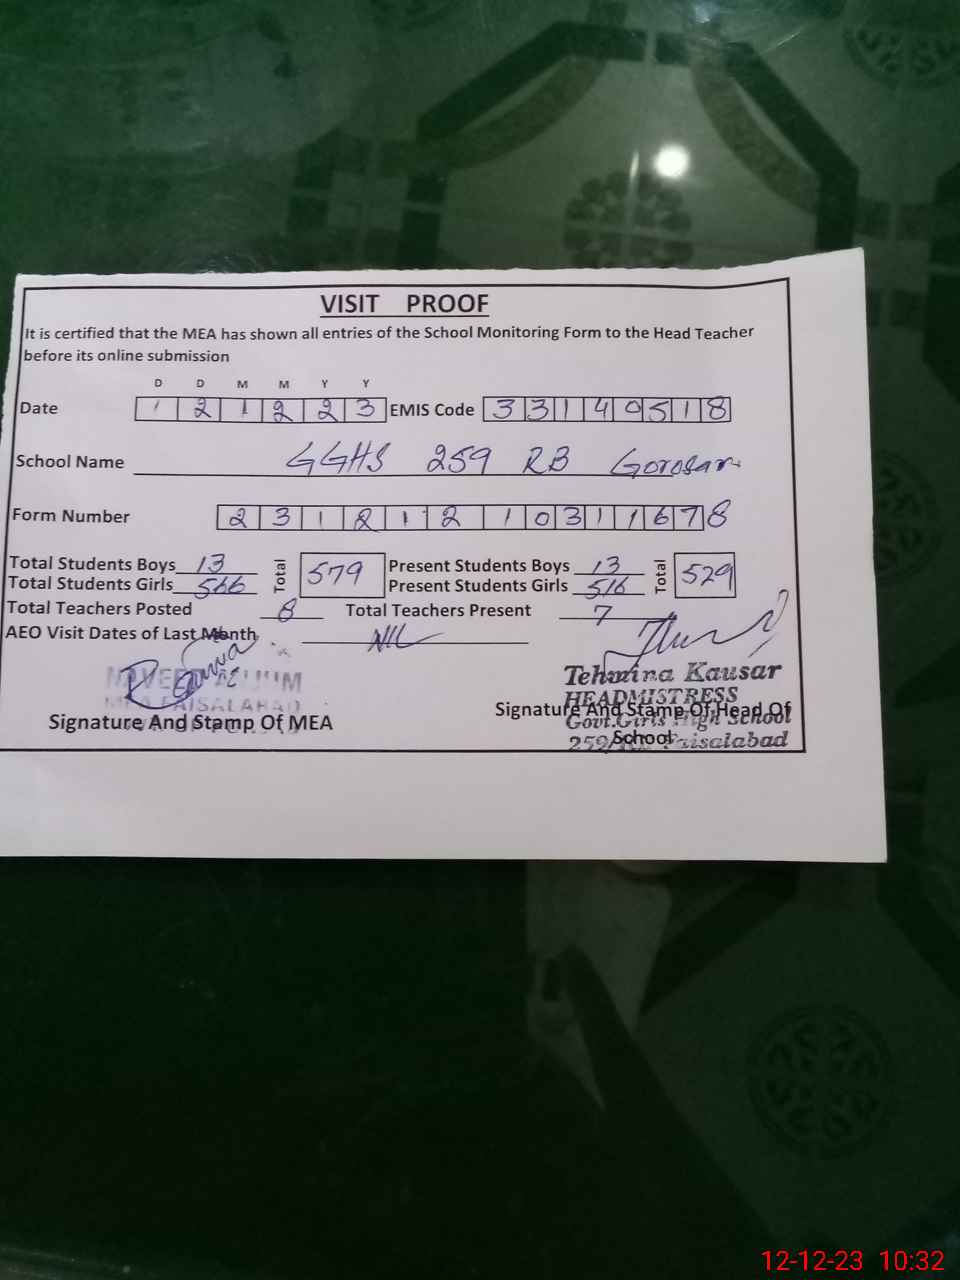 VISIT PROOF
It is certified that the MEA has shown all entries of the School Monitoring Form to the Head Teacher
before its online submission
D D M M Y Y
Date 1 2 1 2 2 3 EMIS Code 3 3 1 4 0 5 1 8
School Name GGHS 259 RB Gorosar
Form Number 2 3 1 2 1 2 1 0 3 1 1 6 7 8
Total Students Boys 13 Total 579 Present Students Boys 13 Total 529
Total Students Girls 566 Present Students Girls 516
Total Teachers Posted 8 Total Teachers Present 7
AEO Visit Dates of Last Month NIL
Tehmina Kausar
HEADMISTRESS
MEA FAISALABAD
Signature And Stamp Of MEA
Signature And Stamp Of Head Of School
Govt. Girls High School
Faisalabad
12-12-23 10:32